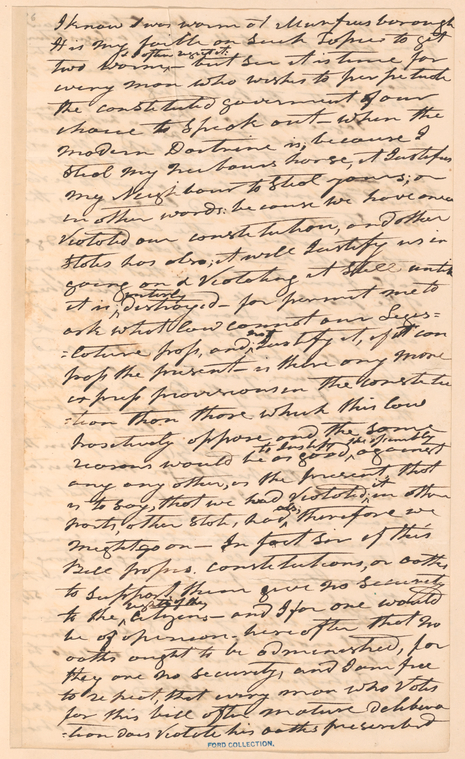 I know I was warm at Murfreesborough
It is my foible on Such Topics to get
& often regret it;
two warm,— but Sir it is time for
every man who wishes to perpetuate
the constituted goverment of our
choice to Speak out— when the
modern Doctrine is, because I
Stole my Neibours horse, it Justifies
my Neighbour to Stole yours; or
in other words because we have once
violated our constitution, and other
States has also, it will Justify us in
going on & Violating it Still until
entirely
it is destroyed— for permit me to
ask what law cannot our Legis=
not
=lature pass, and Justify it, if it can
pass the present— is there any more
express provisions in the constitu
=tion than those which this law
positively oppose, and the same
to Justify this assembly
reasons would be as good, against
any any other, as the present, that
it
is to say, that we had violated, in other
also
parts, other States, had, therefore we
might go on— In fact Sir if this
Bill pass. constitutions, or oaths
to Support them give no Security
rights of the
to the Citizens— and I for one would
be of opinion hereafter that no
oaths ought to be administered, for
they are no Security, and I am free
to repeat that every man who Votes
for this bill after mature delibera
=tion does Violate his oaths prescribed
FORD COLLECTION.